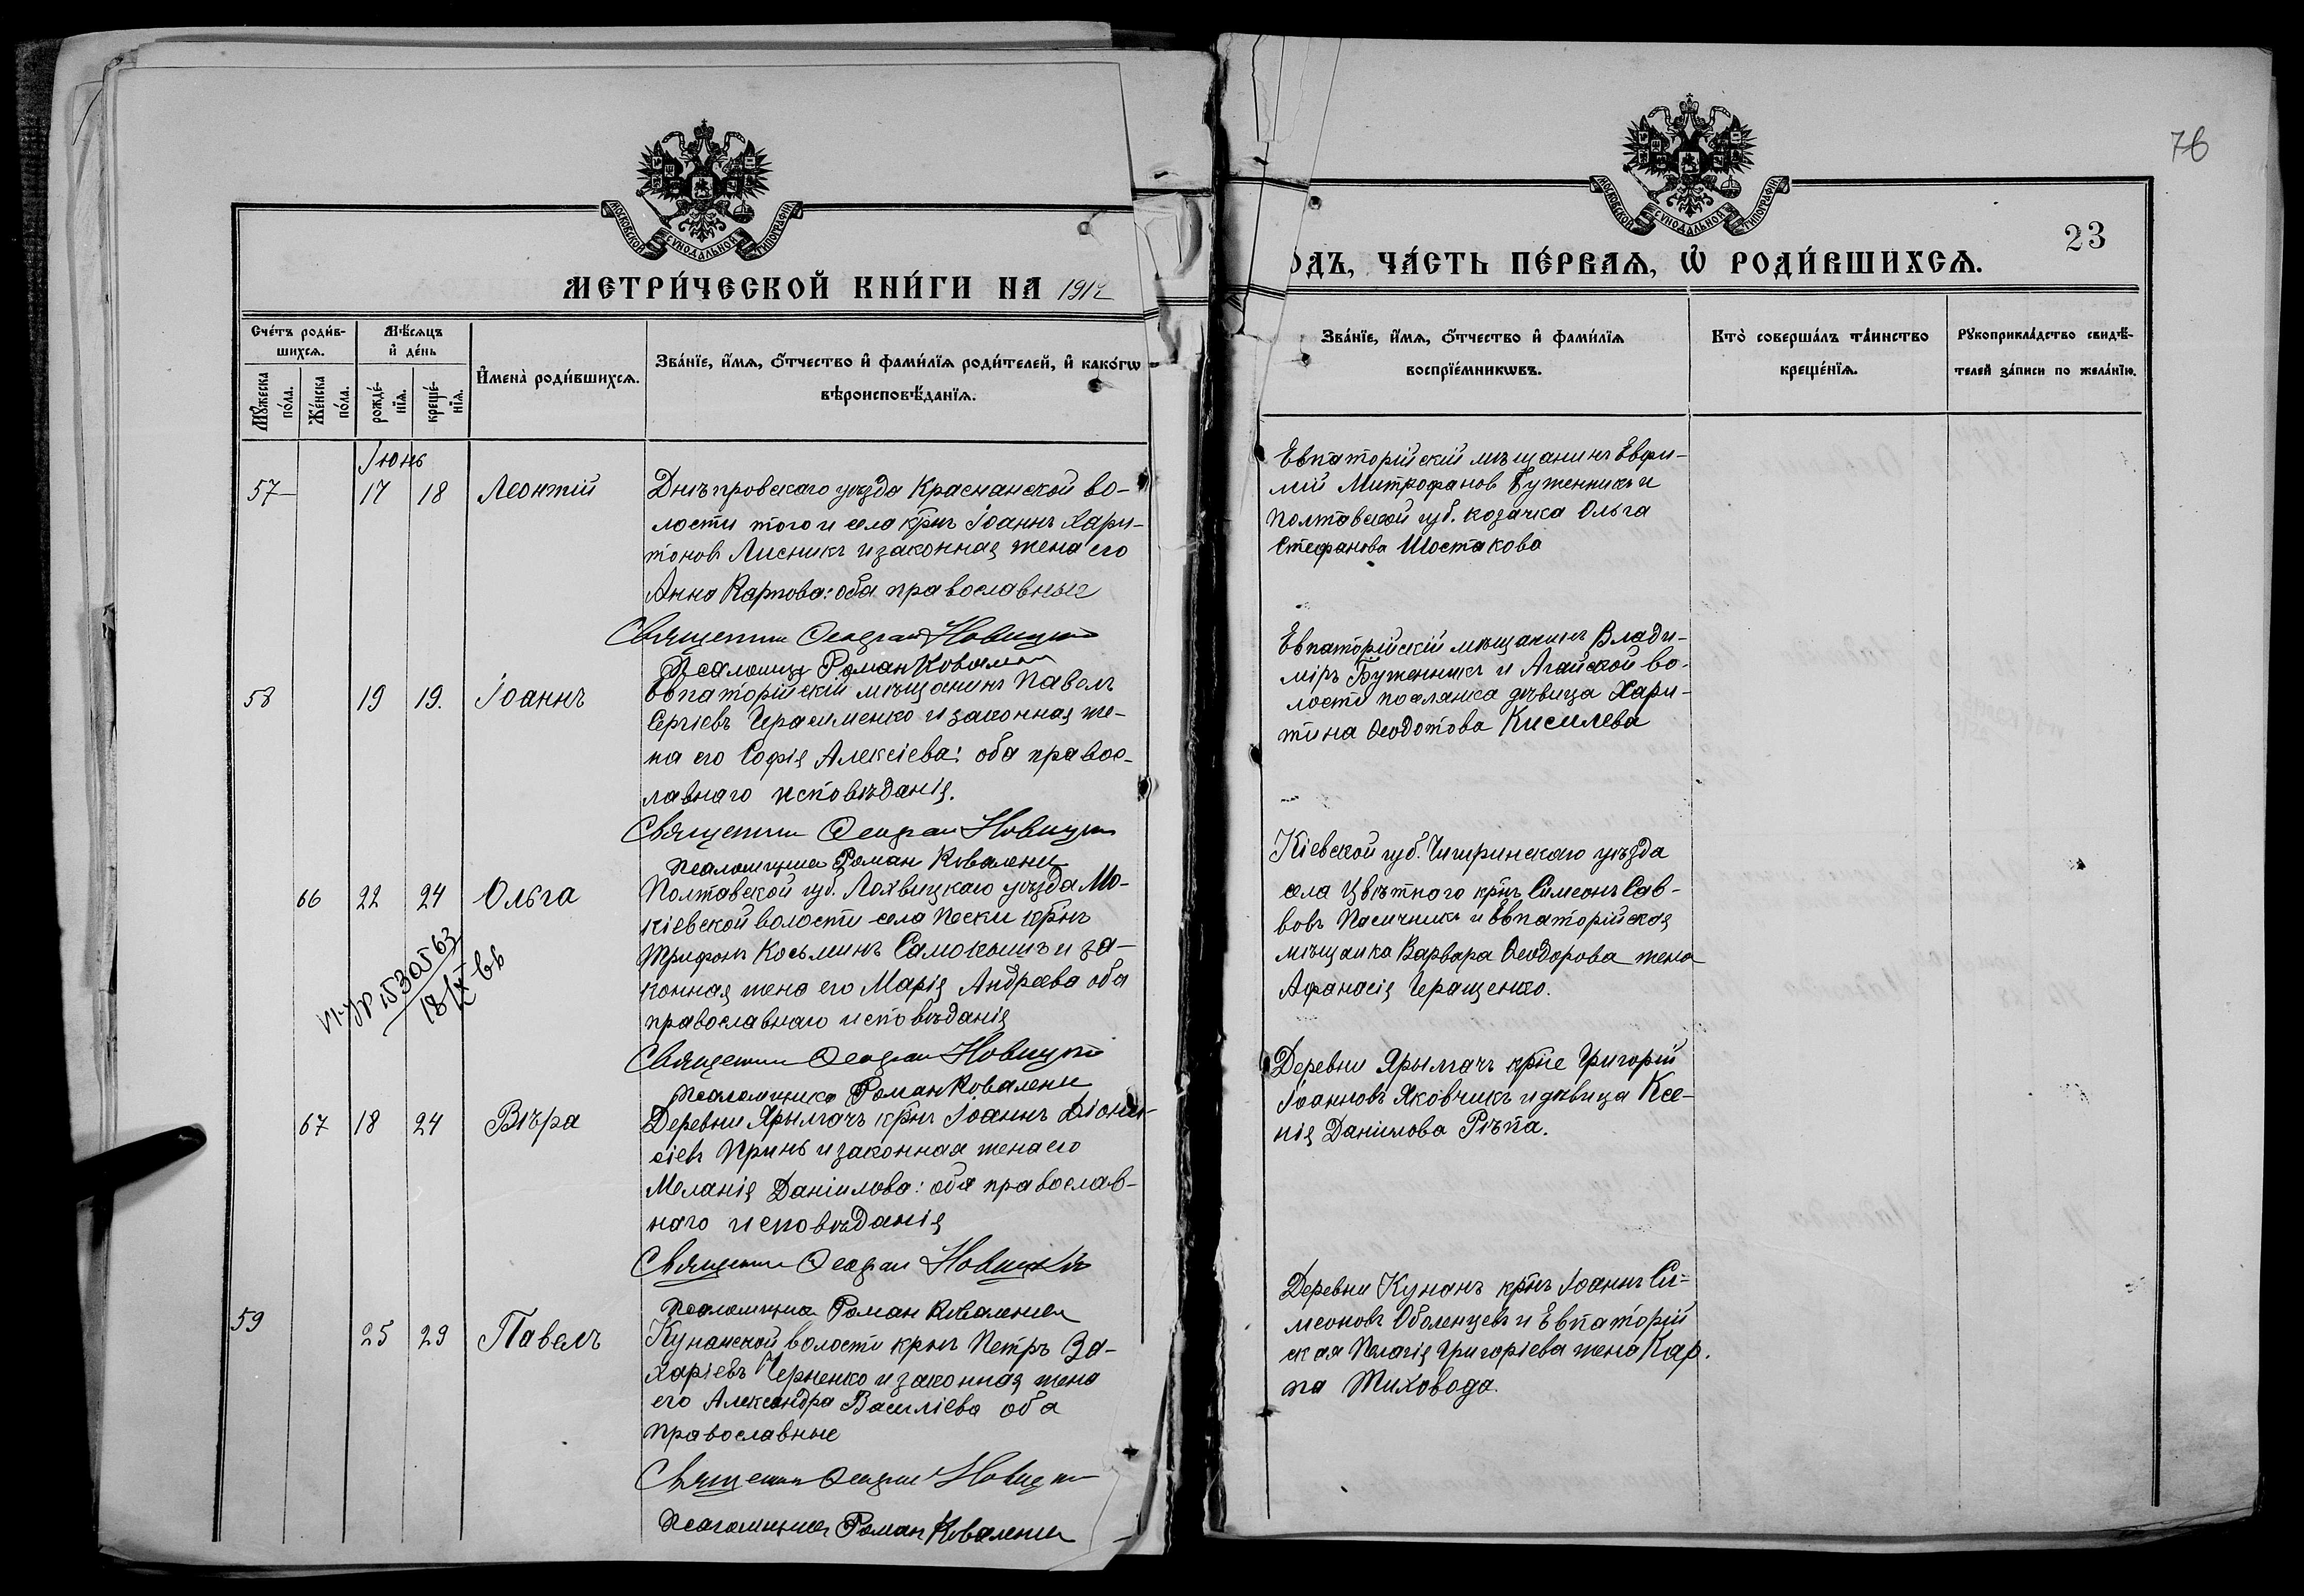 МОСКОВСКОЙ СѴНОДАЛЬНОЙ ТИПОГРАФІИ
МЕТРИ́ЧЕСКОЙ КНИ́ГИ НА 1912
Сче́тъ роди́в-
шихсѧ.
Мѣ́сѧцъ
и҆ де́нь
Мꙋ́жеска
по́ла.
Же́нска
по́ла.
рожде́-
нїѧ.
креще́-
нїѧ.
И҆мена̀ роди́вшихсѧ.
Зва́нїе, и҆́мѧ, ѻ҆́тчество и҆ фами́лїѧ роди́телей, и҆ како́гѡ
вѣроисповѣ́данїѧ.
Іюнь
57 17 18 Леонтій
Днѣпровскаго уѣзда Краснянской во-
лости того и села кр̃нъ Іоаннъ Хари-
тоновъ Лисникъ и законная жена его
Анна Карпова: оба православные
Священникъ Новицкій
Псаломщикъ Романъ
58 19 19. Іоаннъ
Евпаторійскій мѣщанинъ Павелъ
Сергіевъ Герасименко и законная же-
на его Софія Алексіева: оба правос-
лавнаго исповѣданія.
Священникъ Новицкій
Псаломщикъ Романъ
66 22 24 Ольга
Полтавской губ. Лохвицкаго уѣзда Мо-
кіевской волости села Пески кр̃нъ
Трифонъ Косьминъ Самокишъ и за-
конная жена его Марія Андреева оба
православнаго исповѣданія
Священникъ Новицкій
Псаломщикъ Романъ
67 18 24 Вѣра
Деревни Ярылгачъ кр̃нъ Іоаннъ Діони-
сіевъ Принь и законная жена его
Меланія Даніилова: оба православ-
наго исповѣданія
Священникъ Новицкій
Псаломщикъ Романъ
59 25 29 Павелъ
Кунанской волости крнъ Петръ За-
харіевъ Черненко и законная жена
его Александра Василіева оба
православные
Священникъ Новицкій
Псаломщикъ Романъ
18/IX-66
76
МОСКОВСКОЙ СѴНОДАЛЬНОЙ ТИПОГРАФІИ
23
ОДЪ, ЧА́СТЬ ПЕ́РВАѦ, Ѡ҆ РОДИ́ВШИХСѦ.
Зва́нїе, и҆́мѧ, ѻ҆́тчество и҆ фами́лїѧ
воспрїе́мникѡвъ.
Кто̀ соверша́лъ та́инство
креще́нїѧ.
Рꙋкоприкла́дство свидѣ́-
телей за́писи по жела́нїю.
Евпаторійскій мѣщанинъ Евфи-
мій Митрофанов Буженикъ и
Полтавской губ. козачка Ольга
Стефанова Шостакова
Евпаторійскій мѣщанинъ Влади-
міръ Буженникъ и Агайской во-
лости поселянка дѣвица Хари-
тина Ѳеодотова Кисилева
Кіевской губ. Чигиринскаго уѣзда
села Цвѣтного кр̃нъ Симеонъ Сав-
вовъ Пасичникъ и Евпаторійская
мѣщанка Варвара Ѳеодорова жена
Афанасія Геращенко.
Деревни Ярылгачъ кр̃не Григорій
Іоанновъ Яковчикъ и дѣвица Ксе-
нія Даніилова Рѣпа.
Деревни Кунанъ кр̃нъ Іоаннъ Си-
меоновъ Оболенцевъ и Евпаторій
ская Пелагія Григоріева жена Кар-
па Тиховода.